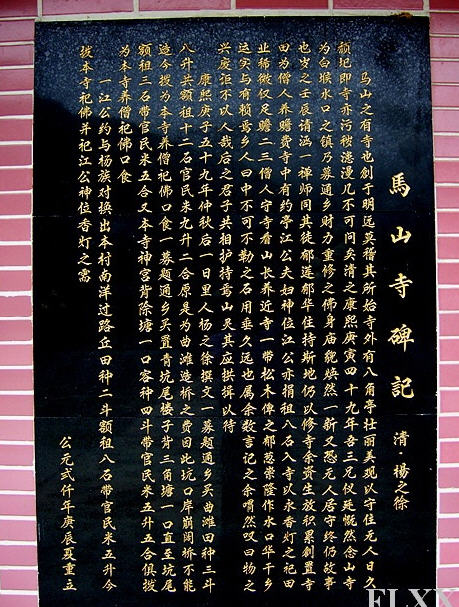 馬山寺碑記
清·楊之徐
馬山之有寺也创于明远莫稽其所始寺外有八角亭壮丽美观以守住无人日久
颓圯即寺亦污秽漶漫几不可问矣清之康熙庚寅四十九年吾三兄仪廷慨然念山寺
为白堠水口之镇乃募通乡财力重修之佛身庙貌焕然一新又恐无人居守终仍故事
也岁之壬辰请涵一禅师同其徒郁莲郁华住持斯地仍以修寺余资生放积累创置寺
田为僧人养赡费寺中有约亭江公夫妇神位江公亦捐租八石入寺以永香灯之祀田
业稀微仅足赡二三僧人守寺看山长养近寺一带松木俾之郁葱崇隆作水口华千乡
运实与有赖焉乡人曰中不可不勒之石用垂久远也属余数言记之余喟然叹曰物之
兴废讵不以人哉后之君子共相护持焉山灵其应拱揖以待
康熙庚子五十九年仲秋后一日里人杨之徐撰文一募题通乡买曲滩田种三斗
八升共额租十二石官民米九升二合原是为曲滩造桥之费因此坑口岸崩阔桥不能
造今拨为本寺养僧祀佛口食一募题通乡买置青坑尾楼子背三角塘一口直至坑尾
额租三石带官民米五合又本寺神宫背除塘一口客种四斗带官民米五升五合俱拨
为本寺养僧祀佛口食
一江公约与杨族对换出本村南洋过路丘田种二斗额租八石带官民米五升今
拨本寺祀佛并祀江公神位香灯之需
公元贰仟年庚辰夏重立
FLXX